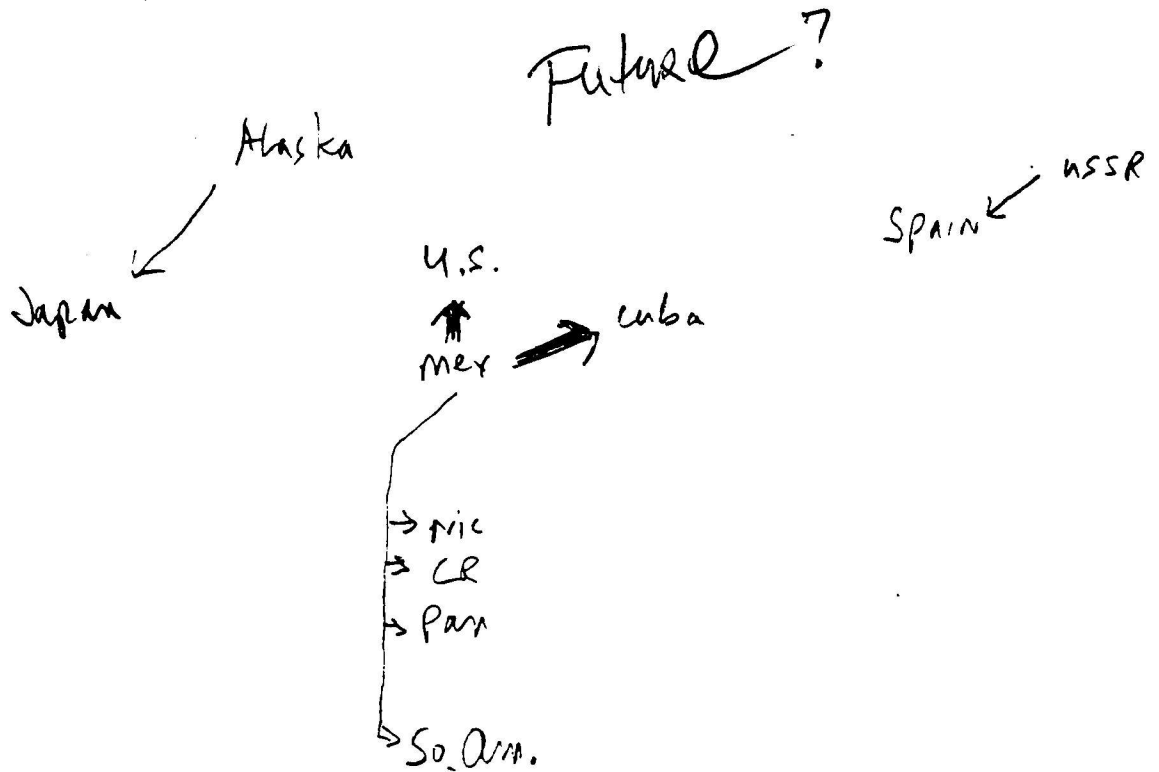 Future?
Alaska
USSR
Spain
U.S.
Japan
Cuba
Mex
Nic
CR
Pan
So. Am.